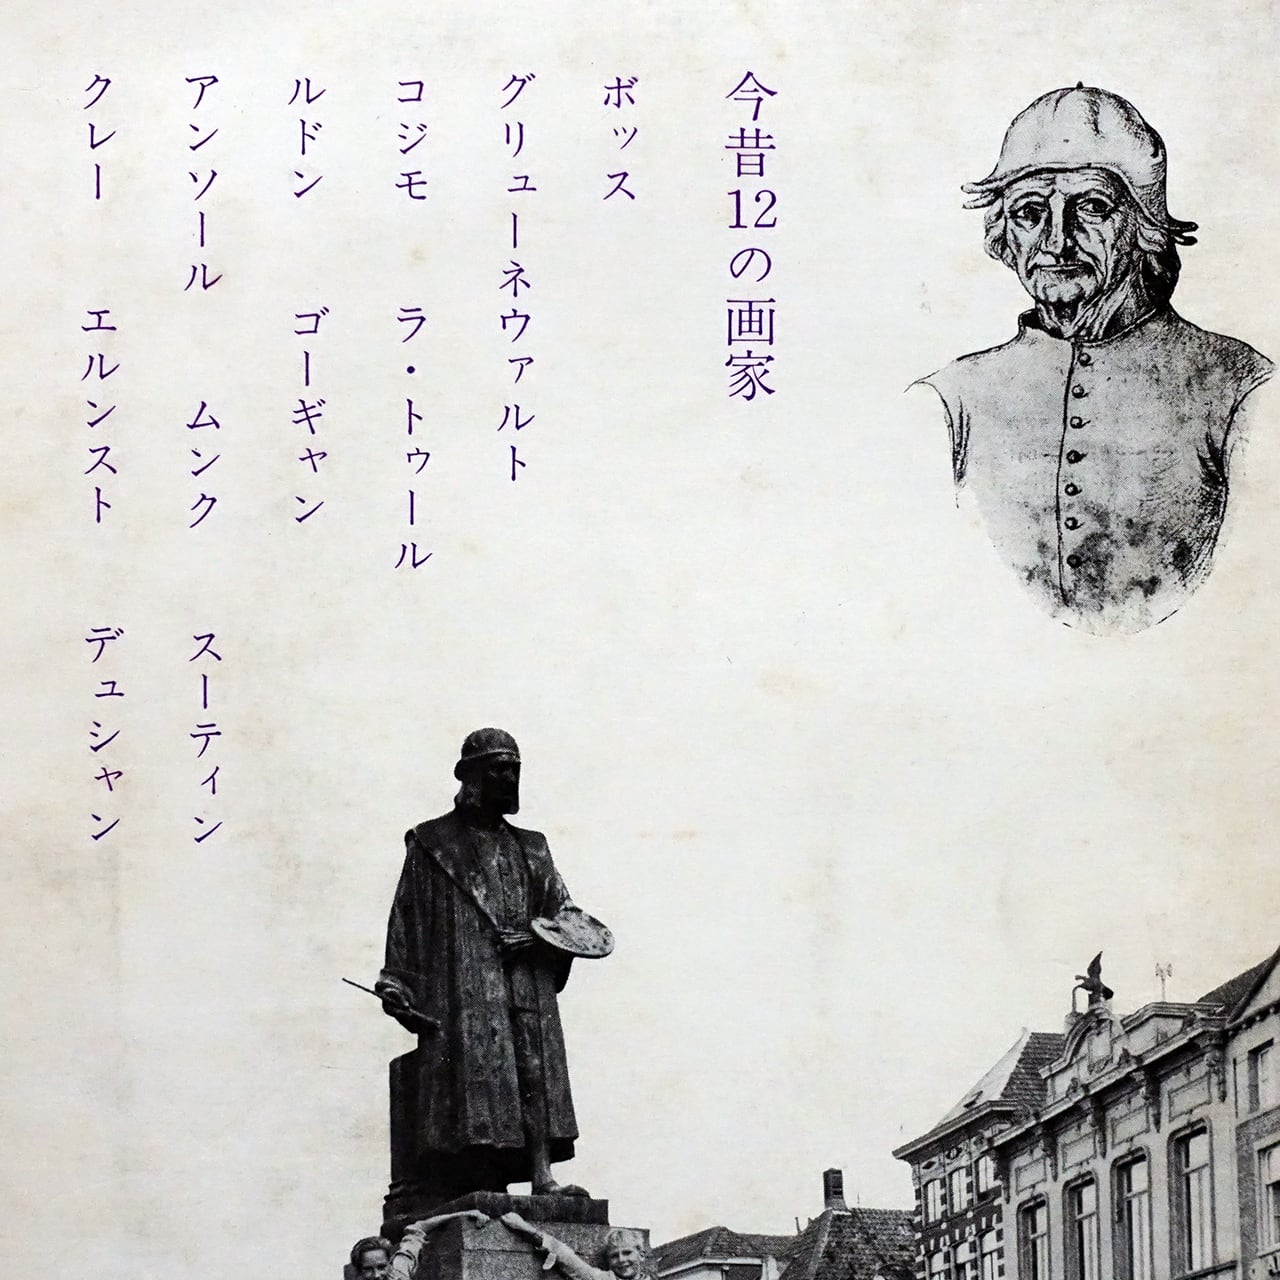 今昔12の画家
ボッス
グリューネウァルト
コジモ　ラ・トゥール
ルドン　ゴーギャン
アンソール　ムンク　スーティン
クレー　エルンスト　デュシャン